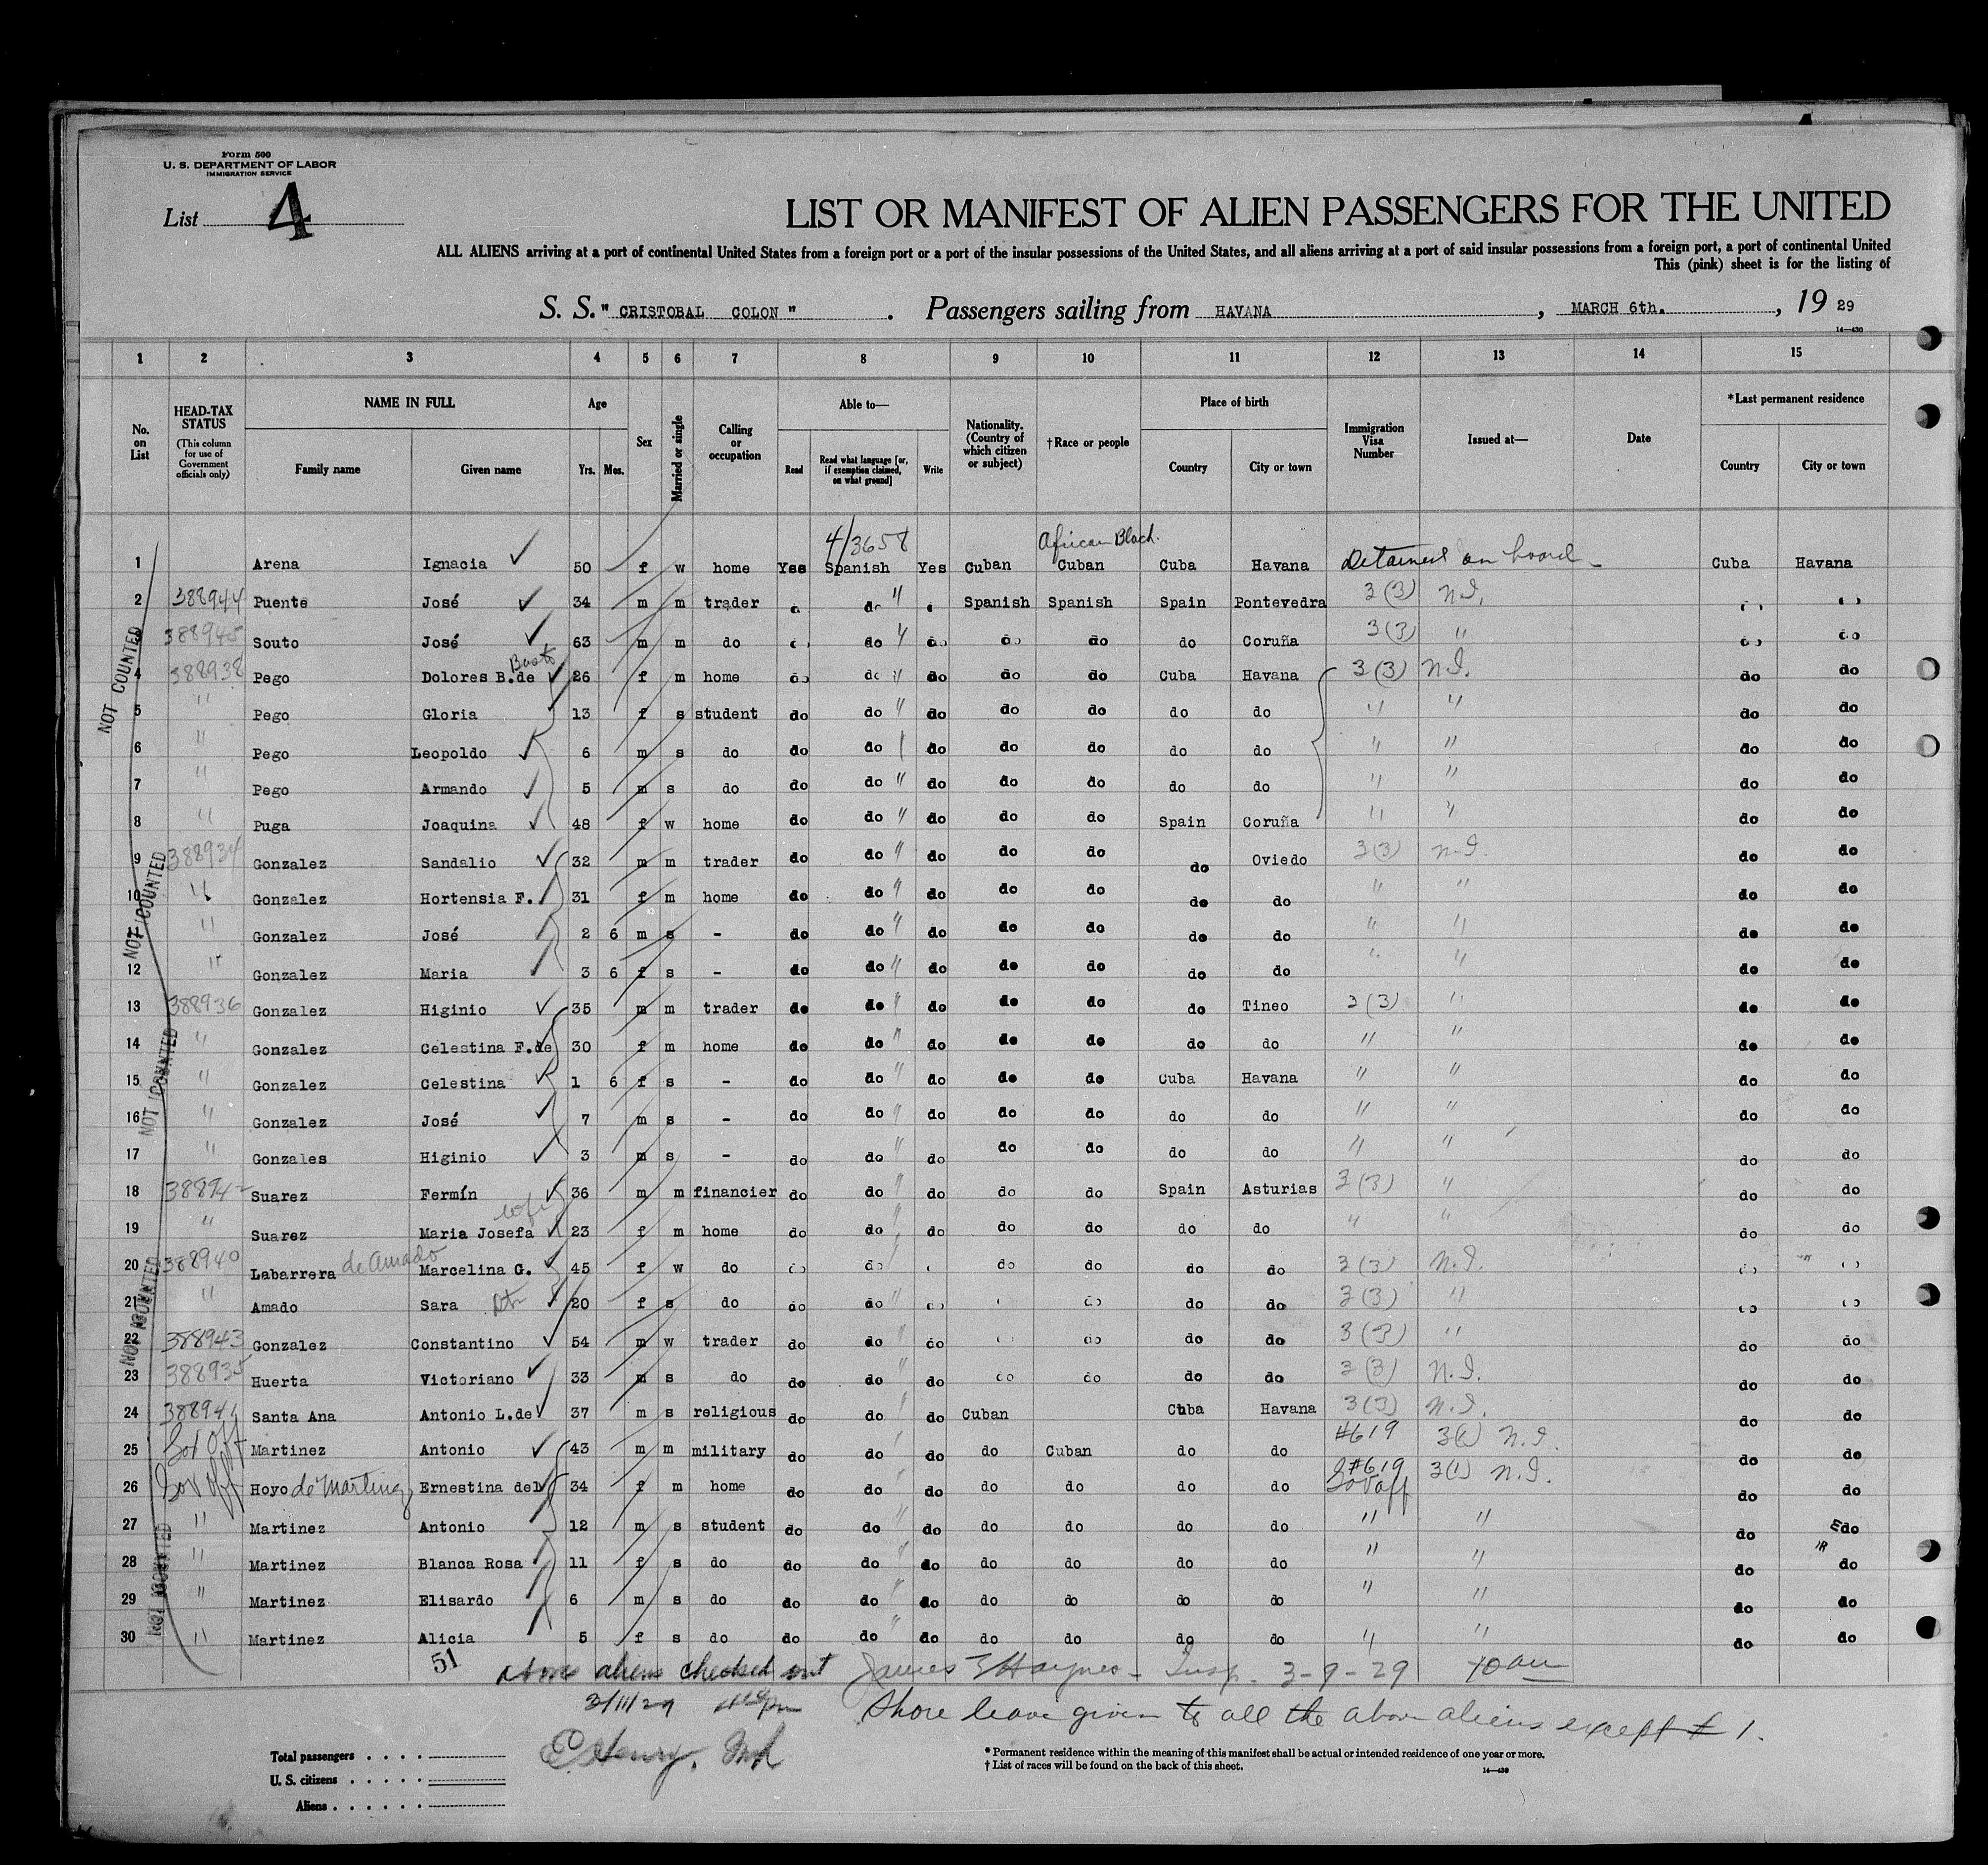 Form 500
U. S. DEPARTMENT OF LABOR
IMMIGRATION SERVICE
List 4
LIST OR MANIFEST OF ALIEN PASSENGERS FOR THE UNITED
ALL ALIENS arriving at a port of continental United States from a foreign port or a port of the insular possessions of the United States, and all aliens arriving at a port of said insular possessions from a foreign port, a port of continental United
This (pink) sheet is for the listing of
S. S. " CRISTOBAL COLON " . Passengers sailing from HAVANA , MARCH 6th. , 19 29
14—430
1 2 3 4 5 6 7 8 9 10 11 12 13 14 15
No. on List
HEAD-TAX STATUS (This column for use of Government officials only)
NAME IN FULL
Family name Given name
Age
Yrs. Mos.
Sex
Married or single
Calling or occupation
Able to—
Read Read what language [or, if exemption claimed, on what ground] Write
Nationality. (Country of which citizen or subject)
†Race or people
Place of birth
Country City or town
Immigration Visa Number
Issued at—
Date
*Last permanent residence
Country City or town
4/3658 African Black.
1 Arena Ignacia 50 f w home Yes Spanish Yes Cuban Cuban Cuba Havana Detained on board Cuba Havana
2 388944 Puente José 34 m m trader do " Spanish Spanish Spain Pontevedra 3(3) N.I.
3 388945 Souto José 63 m m do do " do do do do Coruña 3(3) " do do
4 388938 Pego Dolores B.de 26 f m home do do " do do do Cuba Havana 3(3) N.I. do do
5 " Pego Gloria 13 f s student do do " do do do do do " " do do
6 " Pego Leopoldo 6 m s do do do do do do do do " " do do
7 " Pego Armando 5 m s do do do " do do do do do " " do do
8 " Puga Joaquina 48 f w home do do " do do do Spain Coruña " " do do
9 388934 Gonzalez Sandalio 32 m m trader do do " do do do do Oviedo 3(3) N.I. do do
10 " Gonzalez Hortensia F. 31 f m home do do " do do do do do " " do do
" Gonzalez José 2 6 m s - do do " do do do do do " " do do
12 " Gonzalez Maria 3 6 f s - do do " do do do do do " " do do
13 388936 Gonzalez Higinio 35 m m trader do do " do do do do Tineo 3(3) " do do
14 " Gonzalez Celestina F.de 30 f m home do do " do do do do do " " do do
15 " Gonzalez Celestina 1 6 f s - do do " do do do Cuba Havana " " do do
16 " Gonzalez José 7 m s - do do " do do do do do " " do do
17 " Gonzales Higinio 3 m s - do do " do do do do do " " do do
18 388942 Suarez Fermín 36 m m financier do do " do do do Spain Asturias 3(3) " do do
wife
19 " Suarez Maria Josefa 23 f m home do do " do do do do do " " do do
20 388940 Labarrera de Amado Marcelina G. 45 f w do do do do do do do 3(3) N.I.
21 " Amado Sara Dtr 20 f s do do do " do do do do 3(3) "
22 388943 Gonzalez Constantino 54 m w trader do do " do do do do 3(3) " do do
23 388935 Huerta Victoriano 33 m s do do do " do do do do do 3(3) N.I. do do
24 388941 Santa Ana Antonio L.de 37 m s religious do do do Cuban Cuba Havana 3(3) N.I. do do
25 Gov Off Martinez Antonio 43 m m military do do do do Cuban do do #619 3(1) N.I. do do
26 Gov Off Hoyo de Martinez Ernestina del 34 f m home do do do do do do do #619 Gov off 3(1) N.I. do do
27 " Martinez Antonio 12 m s student do do " do do do do do " " do do
28 " Martinez Blanca Rosa 11 f s do do do " do do do do do " " do do
29 " Martinez Elisardo 6 m s do do do " do do do do do " " do do
30 " Martinez Alicia 5 f s do do do " do do do do do " " do do
NOT COUNTED
NOT COUNTED
NOT COUNTED
NOT COUNTED
NOT COUNTED
51 above aliens checked out James Haynes - Insp. 3-9-29 10 am
3/11/29 Shore leave given to all the above aliens except # 1.
Henry, Ins
Total passengers . . . .
U. S. citizens . . . . .
Aliens . . . . . .
* Permanent residence within the meaning of this manifest shall be actual or intended residence of one year or more.
† List of races will be found on the back of this sheet.
14—430